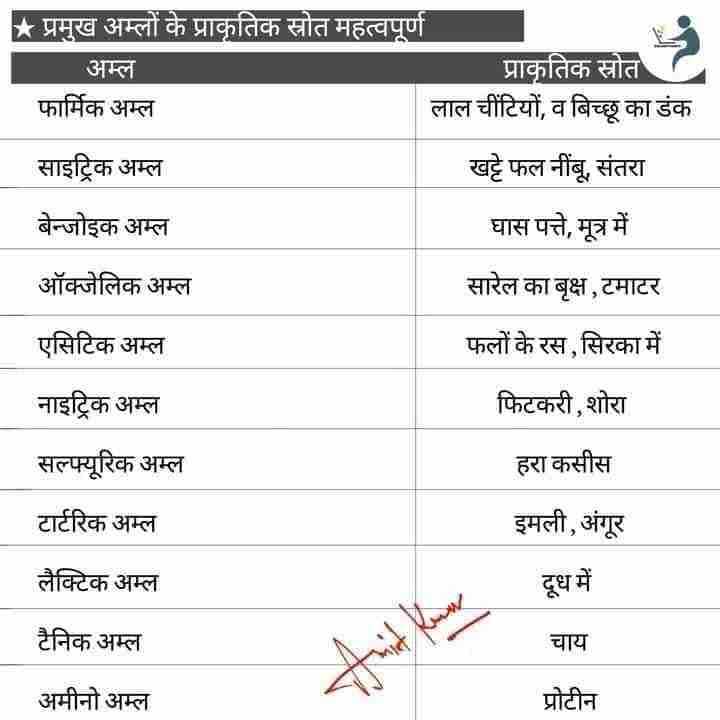 ★ प्रमुख अम्लों के प्राकृतिक स्रोत महत्वपूर्ण
अम्ल प्राकृतिक स्रोत
फार्मिक अम्ल लाल चींटियों, व बिच्छू का डंक
साइट्रिक अम्ल खट्टे फल नींबू, संतरा
बेन्जोइक अम्ल घास पत्ते, मूत्र में
ऑक्जेलिक अम्ल सारेल का बृक्ष , टमाटर
एसिटिक अम्ल फलों के रस , सिरका में
नाइट्रिक अम्ल फिटकरी , शोरा
सल्फ्यूरिक अम्ल हरा कसीस
टार्टरिक अम्ल इमली , अंगूर
लैक्टिक अम्ल दूध में
टैनिक अम्ल चाय
अमीनो अम्ल प्रोटीन
Amit Kumar